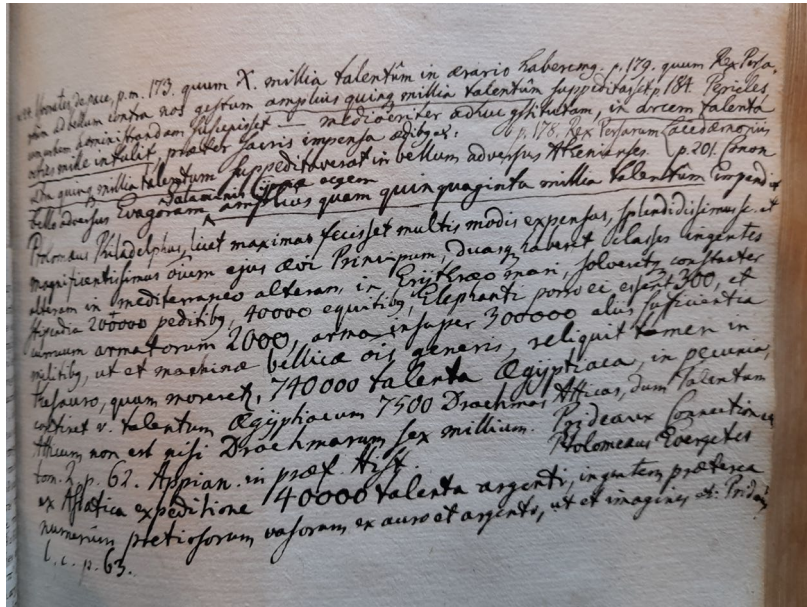 Isocrates de pace, p.m. 173. quum X. millia talentûm in ærario haberemq. p. 179. quum Rex Persa-
rum ad bellum contra nos gestum amplius quinq millia talentûm suppeditasset p 184. Pericles
administrandam suscepisset mediocriter adhuc in arcem talenta
octies mille intulit præter sacris impensa p. 178. Rex Persarum Lacedæmoniis
quinq millia talentum suppeditaverat in bellum adversus Athenienses. p. 201. Conon
Salaminis
bello adversus Evagoram amplius quam quinquaginta millia talentûm impendit
Ptolomæus Philadelphus, licet maximas fecisset multis modis expensas, splendidissimus sc. et
magnificentissimus oium ejus ævi Principum, duasq haberet classes ingentes
alteram in mediterraneo alteram, in Erythræo mari, solveretq constanter
stipendia 200000 peditibq, 40000 equitibq, Elephanti porro ei essent 300, et
curruum armatorum 2000, arma insuper 300000 aliis sufficientia
militibq, ut et machinæ bellicæ ois generis, reliquit tamen in
thesauro, quum moreret, 740000 talenta Ægyptiaca, in pecunia,
v. talentum Ægyptiacum 7500 Drachmas Atticas, dum Talentum
Atticum non est nisi Drachmarum sex millium. Prideaux Connection
tom. 2 p. 62. Appian. in præf. Hist. Ptolomæus Evergetes
ex Asiatica expeditione 40000 talenta argenti, ingentem præterea
numerum pretiosorum vasorum ex auro et argento, ut et imagines
l. c. p. 63.